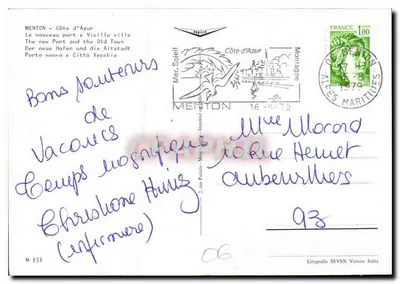 MENTON - Côte d'Azur
Le nouveau port e Vieille ville
The new Port and the Old Town
Der neue Hafen und die Altstadt
Porto nuovo e Città Vecchia
Bons souvenirs
de
Vacances
Temps magnifique
Christiane
(infirmière)
M 151
Mer. Soleil
Côte d'Azur
Montagne
MENTON
16
1979
ALPES MARITIMES
FRANCE
1,00
Mme Morard
16 Rue Hemet
Aubervilliers
93
06
Litografia SEVEN Verona Italia